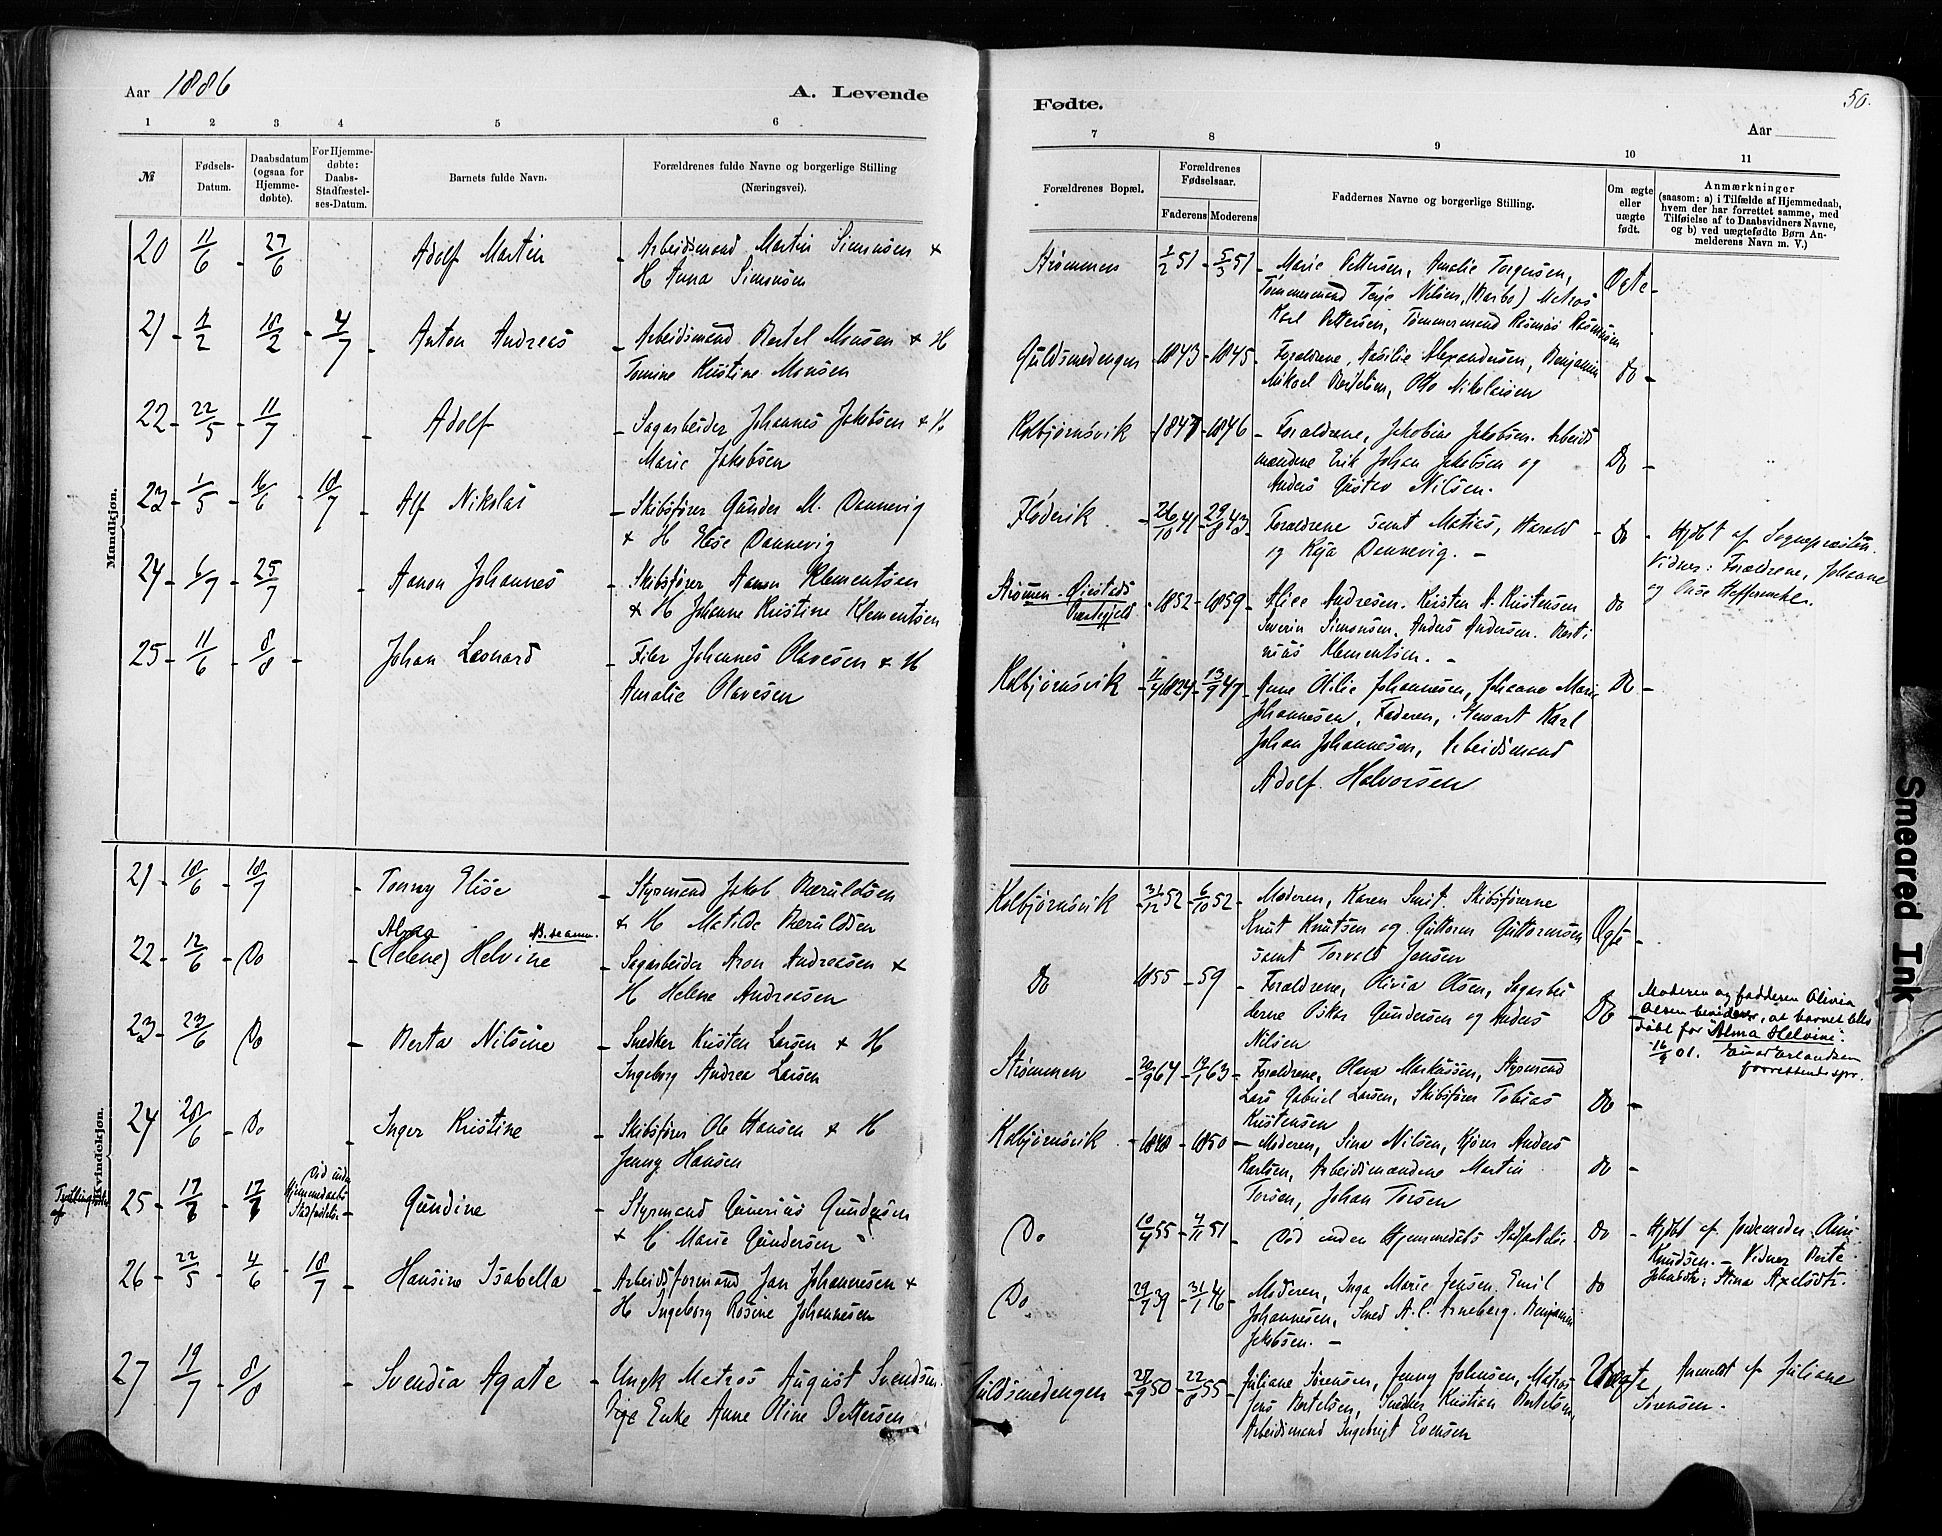 Aar 1886
A. Levende
1 2 3 4 5 6
№
Fødsels-Datum.
Daabsdatum (ogsaa for Hjemme-døbte).
For Hjemme-døbte: Daabs-Stadfæstel-ses-Datum.
Barnets fulde Navn.
Forældrenes fulde Navne og borgerlige Stilling
(Næringsvei).
Mandkjøn.
20 11/6 - 27/6 Adolf Martin - Arbeidsmand Martin Simonsen +
H Anna Simonsen
21 - 8/2 18/2 - 4/7 - Anton Andreas - Arbeidsmand Bertel Monsen + H
Tomine Kristine Monsen
22 - 22/5 - 11/7 - Adolf - Sagarbeider Johannes Jakobsen + H
Marie Jakobsen
23 - 1/5 - 16/6 - 18/7 - Alf Nikolai - Skibsfører Gunder M. Dannevig
+ H Elise Dannevig
24 - 6/7 - 25/7 - Aanon Johannes - Skibsfører Aanon Klementsen
+ H Johanne Kristine Klementsen
25 - 11/6 - 8/8 - Johan Leonard - Filer Johannes Olavesen + H
Amalie Olavesen
Kvindekjøn.
21 - 18/6 - 18/7 - Tonny Elise - Styrmand Jakob Bæruldsen
+ H Matilde Bæruldsen
Alma
22 - 12/6 - Do - (Helene) Helvine NB. se anm. - Sagarbeider Aron Andreasen +
H Helene Andreasen
23 - 23/6 - Do - Berta Nilsine - Snedker Kristen Larsen + H
Ingeborg Andrea Larsen
24 20/6 - Do - Inger Kristine - Skibsfører Ole Hansen + H
Jenny Hansen
25 - 17/6 - 17/6 Død inden Hjemmedaabs Stadfæstelse - Gundine - Styrmand Gunerius Gundersen
+ H Marie Gundersen
26 - 22/5 - 4/6 - 18/7 - Hansine Isabella - Arbeidsformand Jan Johannesen +
H Ingeborg Rosine Johannesen
27 19/7 - 8/8 - Svendia Agate - Ungk Matros August Svendsen.
Pige Enke Anne Oline Pettersen
Fødte.
50.
Aar
7 8 9 10 11
Forældrenes Bopæl.
Forældrenes Fødselsaar.
Faderens Moderens
Faddernes Navne og borgerlige Stilling.
Om ægte eller uægte født.
Anmærkninger
(saasom: a) i Tilfælde af Hjemmedaab,
hvem der har forrettet samme, med
Tilføielse af to Daabsvidners Navne,
og b) ved uægtefødte Børn An-
melderens Navn m. V.)
Strømmen 1/2 51 - 5/3 51 - Marie Pettersen, Amalie Torgersen, Ægte -
Tømmermand Terje Nilsen, (Barbo) Matros
Karl Pettersen, Tømmermand Rasmus Rasmussen
Guldsmedengen - 1843 - 1845 - Forældrene, Alexandersen, Benjamin Do -
Mikael Bertelsen, Otto Nikolaisen
Kolbjørnsvik - 1847 - 1846 - Forældrene, Jakobine Jakobsen. Arbeids
mændene Erik Johan Jakobsen og Do -
Anders Gustav Nilsen.
Flødevik - 26/10 41 - 29/8 43 - Forældrene samt Matias, Harald - Do - Hjdbt af Sognepræsten.
og Kaja Dannevig. - Vidner: Forældrene, Johanne
og Hefermehl.
Strømmen - Øiestads
Præstegjeld - 1852 - 1859 - Alice Andresen. Kristen A. Kristensen Do
Severin Simonsen. Anders Andersen. Berti
nius Klementsen. -
Kolbjørnsvik 11/4 1824 - 13/9 47 - Anne Otilie Johannesen, Johanne Marie Do -
Johannesen, Faderen, Stuart Karl
Johan Johannesen, Arbeidsmand
Adolf Halvorsen
Kolbjørnsvik - 31/12 52 - 6/10 52 - Moderen, Karen Smit. Skibsførerne
Knut Knutsen og Guttorm Guttormsen Ægte -
samt Torvald Jensen
Do 1855 - 59 - Forældrene, Olivia Olsen, Sagarbei
derne Oskar Gundersen og Anders Do - Moderen og fadderen Olivia
Nilsen Olsen bevidner, at barnet blev
døbt for "Alma Helvine".
16/9 01. Einar Erlandsen
forrettende spr.
Strømmen 20/9 64 - 19/1 63 - Forældrene, Olava Markussen, Styrmand
Lars Gabriel Larsen, Skibsfører Tobias Do -
Kristensen
Kolbjørnsvik - 1848 - 1850 - Moderen, Sina Nilsen, Anders
Karlsen, Arbeidsmændene Martin Do -
Torsen, Johan Torsen
Do 10/4 55 - 4/11 51 - Død inden Hjemmedaabs Stadfæstelse Do - Hjdbt af Jordemoder
Knudsen. - Vidner Berte
Jakobsdtr, Stina Axelsdtr.
Do 29/7 39 - 31/1 46 - Moderen, Inga Marie Jensen. Emil Do
Johannesen, Smed A. C. Arneberg. Benjamin
Jakobsen. -
Guldsmedengen 27/9 50 - 22/8 55 - Juliane Sørensen, Jenny Johnsen, Matros Uægte Anmeldt af Juliane
Jens Bertelsen, Snedker Kristian Bertelsen, Sørensen.
Arbeidsmand Ingebrigt Evensen
Smeared Ink